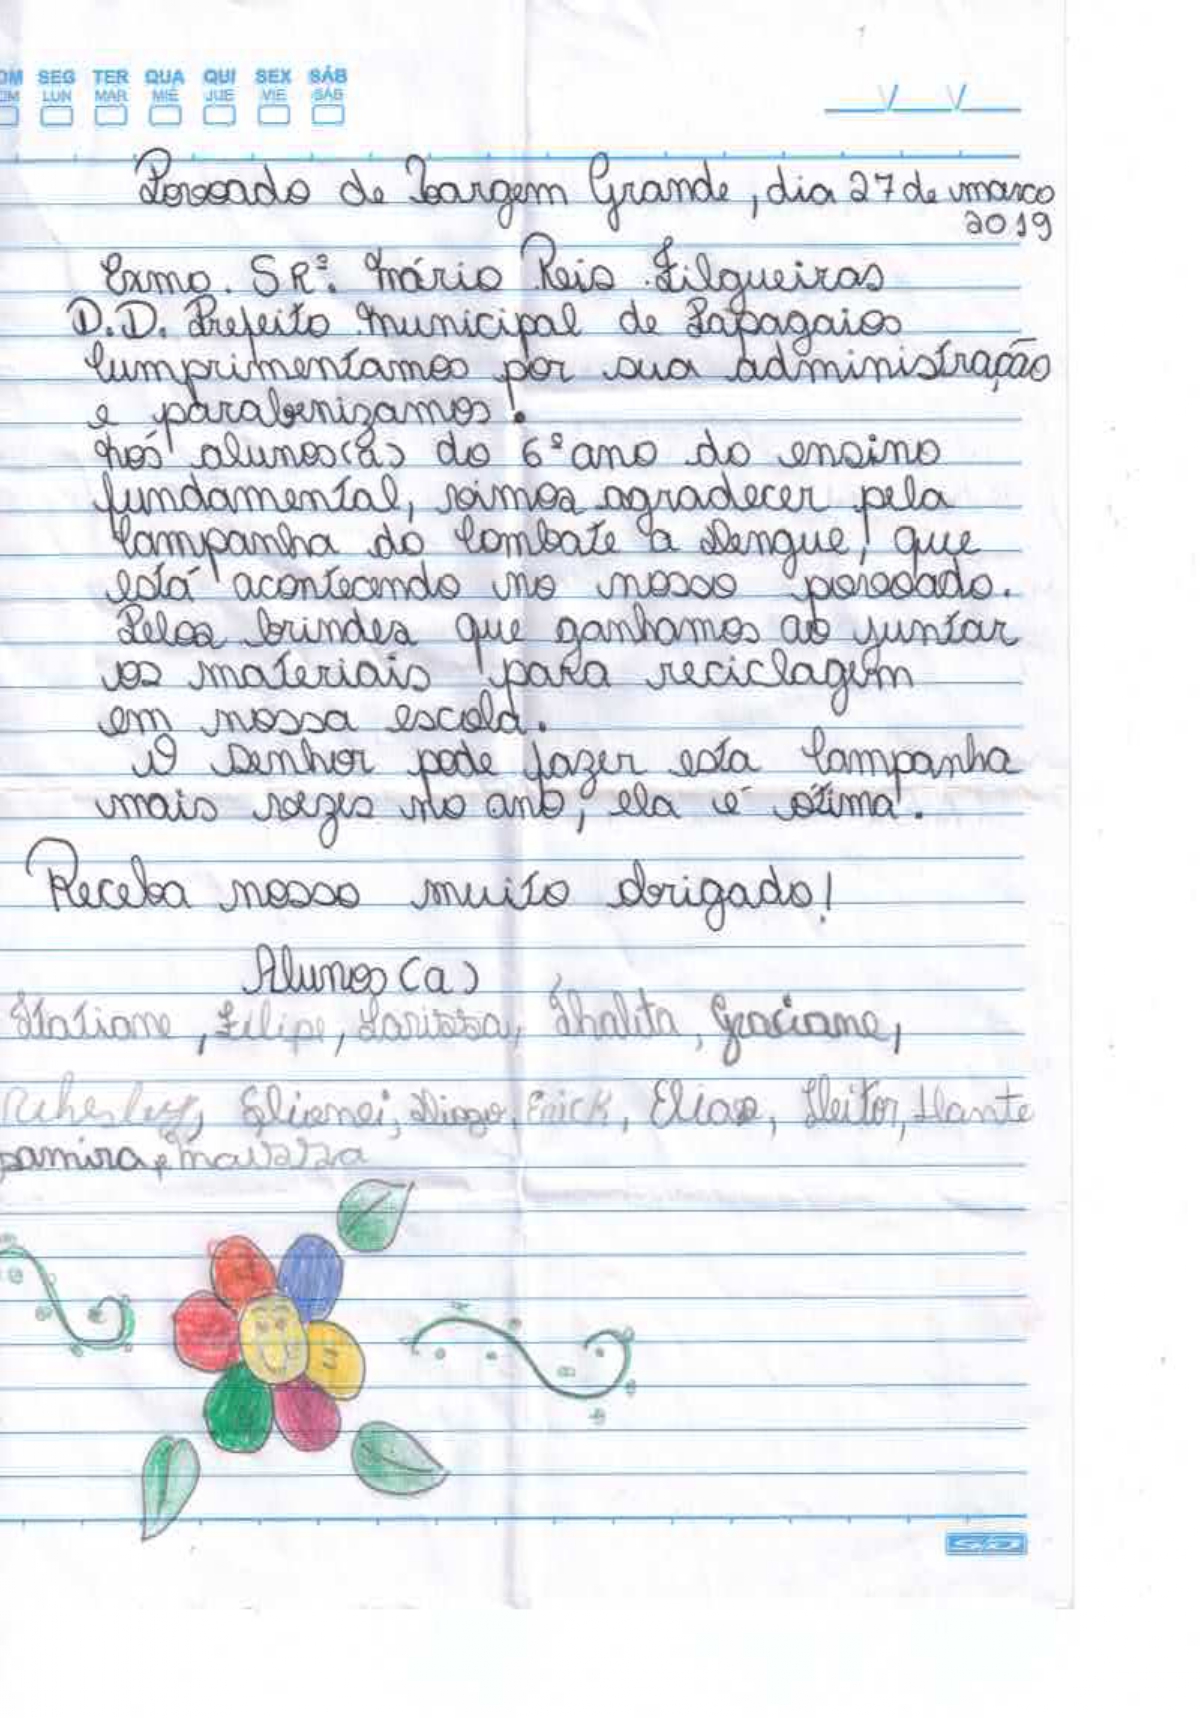 OM SEG TER QUA QUI SEX SÁB
OM LUN MAR MIÉ JUE VIE SÁB
Povoado de Vargem Grande, dia 27 de março
2019
Exmo. SRº. Mário Reis Filgueiras
D.D. Prefeito Municipal de Papagaios
Cumprimentamos por sua administração
e parabenizamos.
Nós alunos(as) do 6º ano do ensino
fundamental, vimos agradecer pela
Campanha do Combate a Dengue, que
está acontecendo no nosso povoado.
Pelos brindes que ganhamos ao juntar
os materiais para reciclagem
em nossa escola.
O Senhor pode fazer esta Campanha
mais vezes no ano, ela é ótima.
Receba nosso muito obrigado!
Alunos(a)
Tatiane, Filipe, Larissa, Thalita, Graciane,
Elienei, Diogo, Erick, Elias, Heitor, Dante
samira e